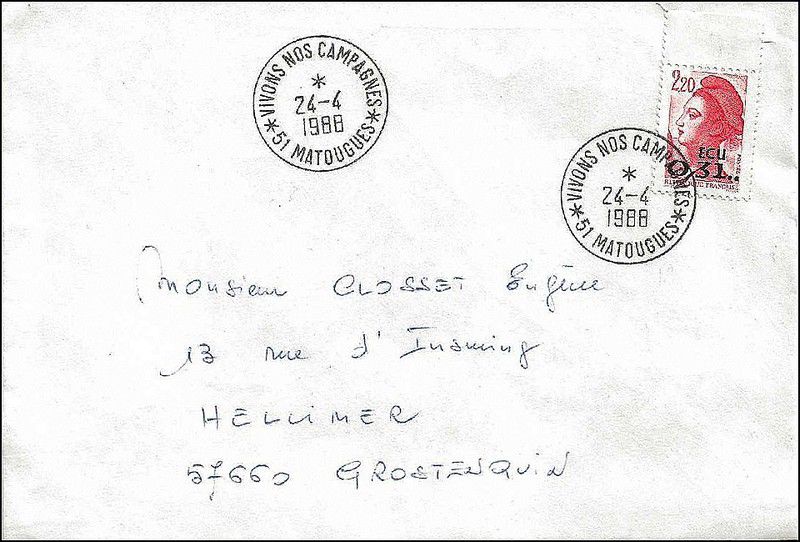 *VIVONS NOS CAMPAGNES*
*
24-4
1988
51 MATOUGUES
2,20
ECU
0,31..
REPUBLIQUE FRANÇAISE
*VIVONS NOS CAMPAGNES*
*
24-4
1988
51 MATOUGUES
Monsieur CLOSSET Eugène
13 rue d'Insming
HELLIMER
57660 GROSTENQUIN